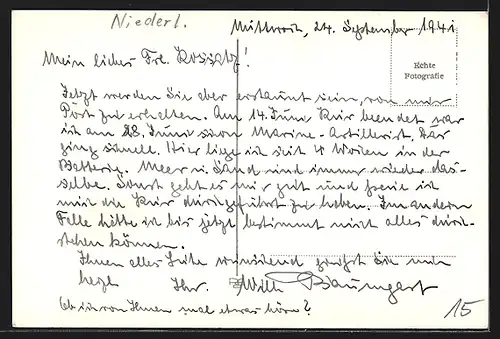 Niederl.
Mittwoch, 24. September 1941
Mein liebes Frl. !
Echte
Fotografie
Jetzt werden Sie aber erstaunt sein, von mir
Post zu erhalten. Am 14. Juni Kur beendet war
ich am 28. Juni schon Marine-Artillerist. Das
ging schnell. Hier liege ich seit 4 Wochen in der
Batterie. Meer u. Sand sind immer wieder das-
selbe. Sonst geht es mir gut und freue ich
mich die Kur durchgeführt zu haben. Im andern
Falle hätte ich bis jetzt bestimmt nicht alles durch-
stehen können.
Ihnen alles Gute wünschend grüßt Sie
Ihr Willi Baumgart
Ob ich von Ihnen mal etwas höre?
15